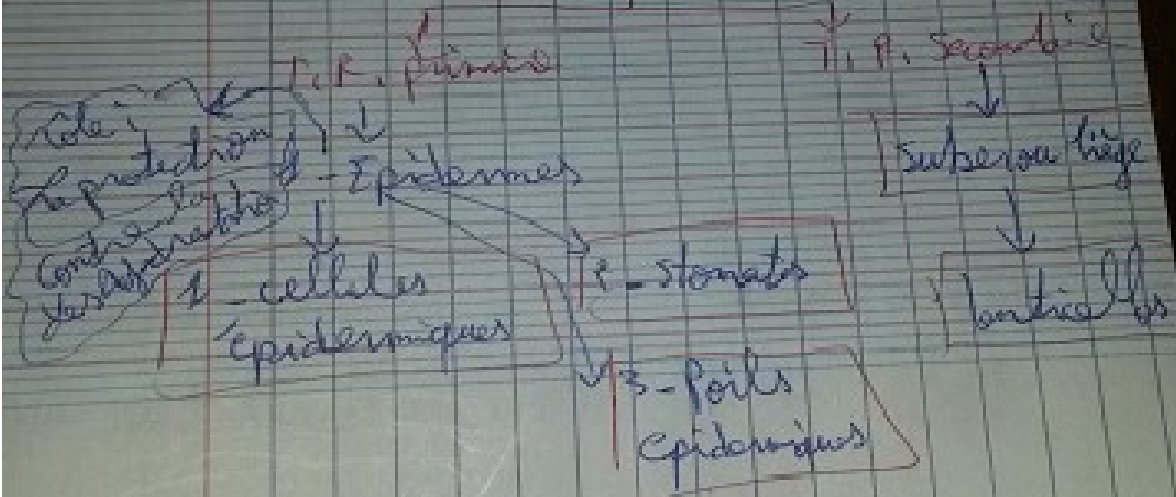 T. R. primaire
T. R. Secondaire
Role :
La protection
contre la
deshydratation
- Epidermes
Suber ou liège
1 - cellules
épidermiques
2 - stomates
lenticelles
3 - Poils
épidermiques